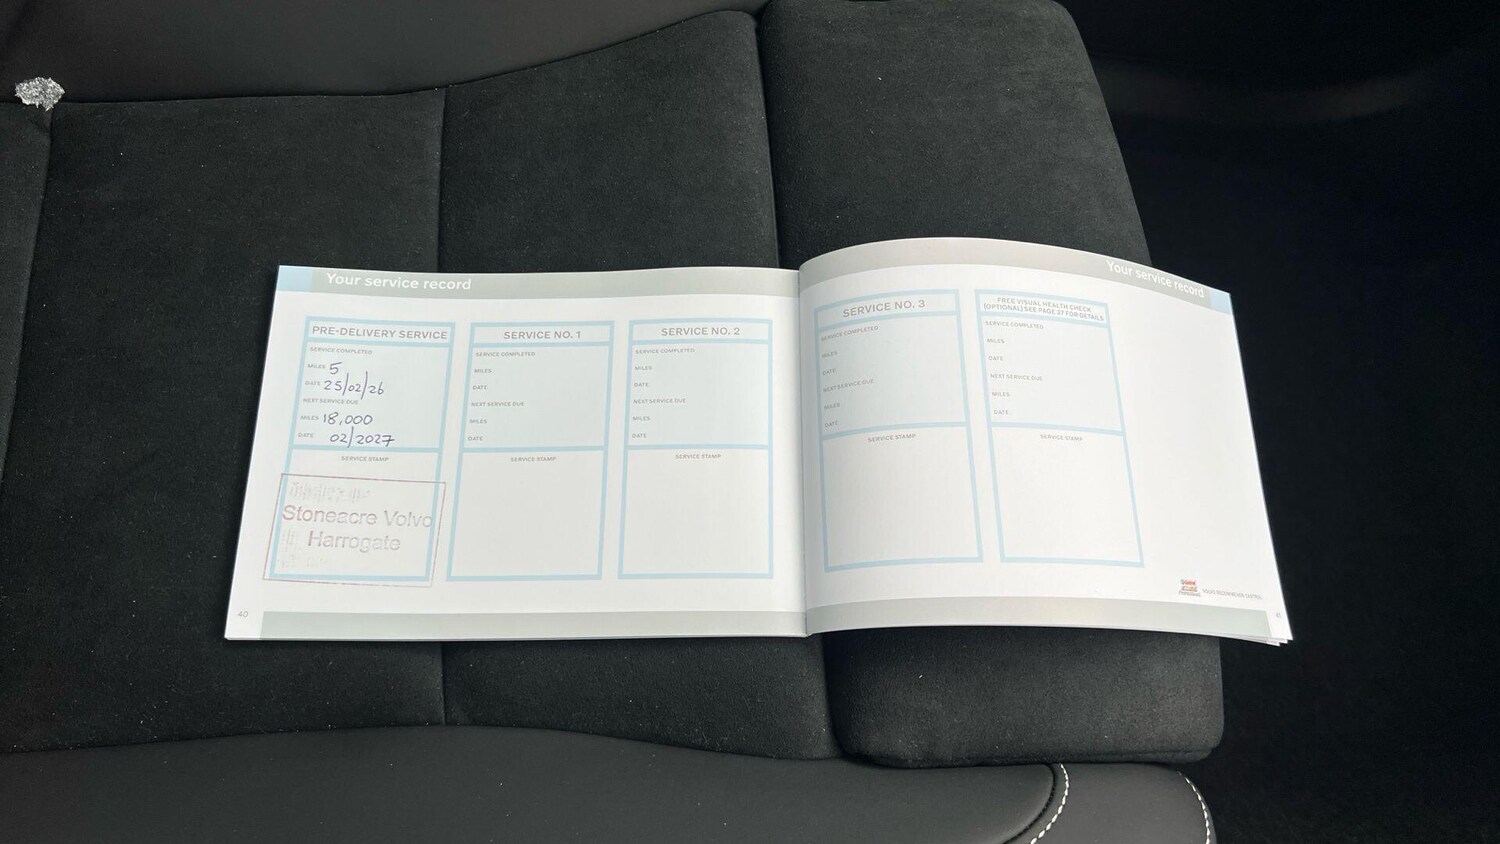 Your service record
PRE-DELIVERY SERVICE
SERVICE COMPLETED
MILES 5
DATE 25/02/26
NEXT SERVICE DUE
MILES 18,000
DATE 02/2027
SERVICE STAMP
Stoneacre Volvo
Harrogate
SERVICE NO. 1
SERVICE COMPLETED
MILES
DATE
NEXT SERVICE DUE
MILES
DATE
SERVICE STAMP
SERVICE NO. 2
SERVICE COMPLETED
MILES
DATE
NEXT SERVICE DUE
MILES
DATE
SERVICE STAMP
40
Your service record
SERVICE NO. 3
SERVICE COMPLETED
MILES
DATE
NEXT SERVICE DUE
MILES
DATE
SERVICE STAMP
FREE VISUAL HEALTH CHECK
(OPTIONAL) SEE PAGE 37 FOR DETAILS
SERVICE COMPLETED
MILES
DATE
NEXT SERVICE DUE
MILES
DATE
SERVICE STAMP